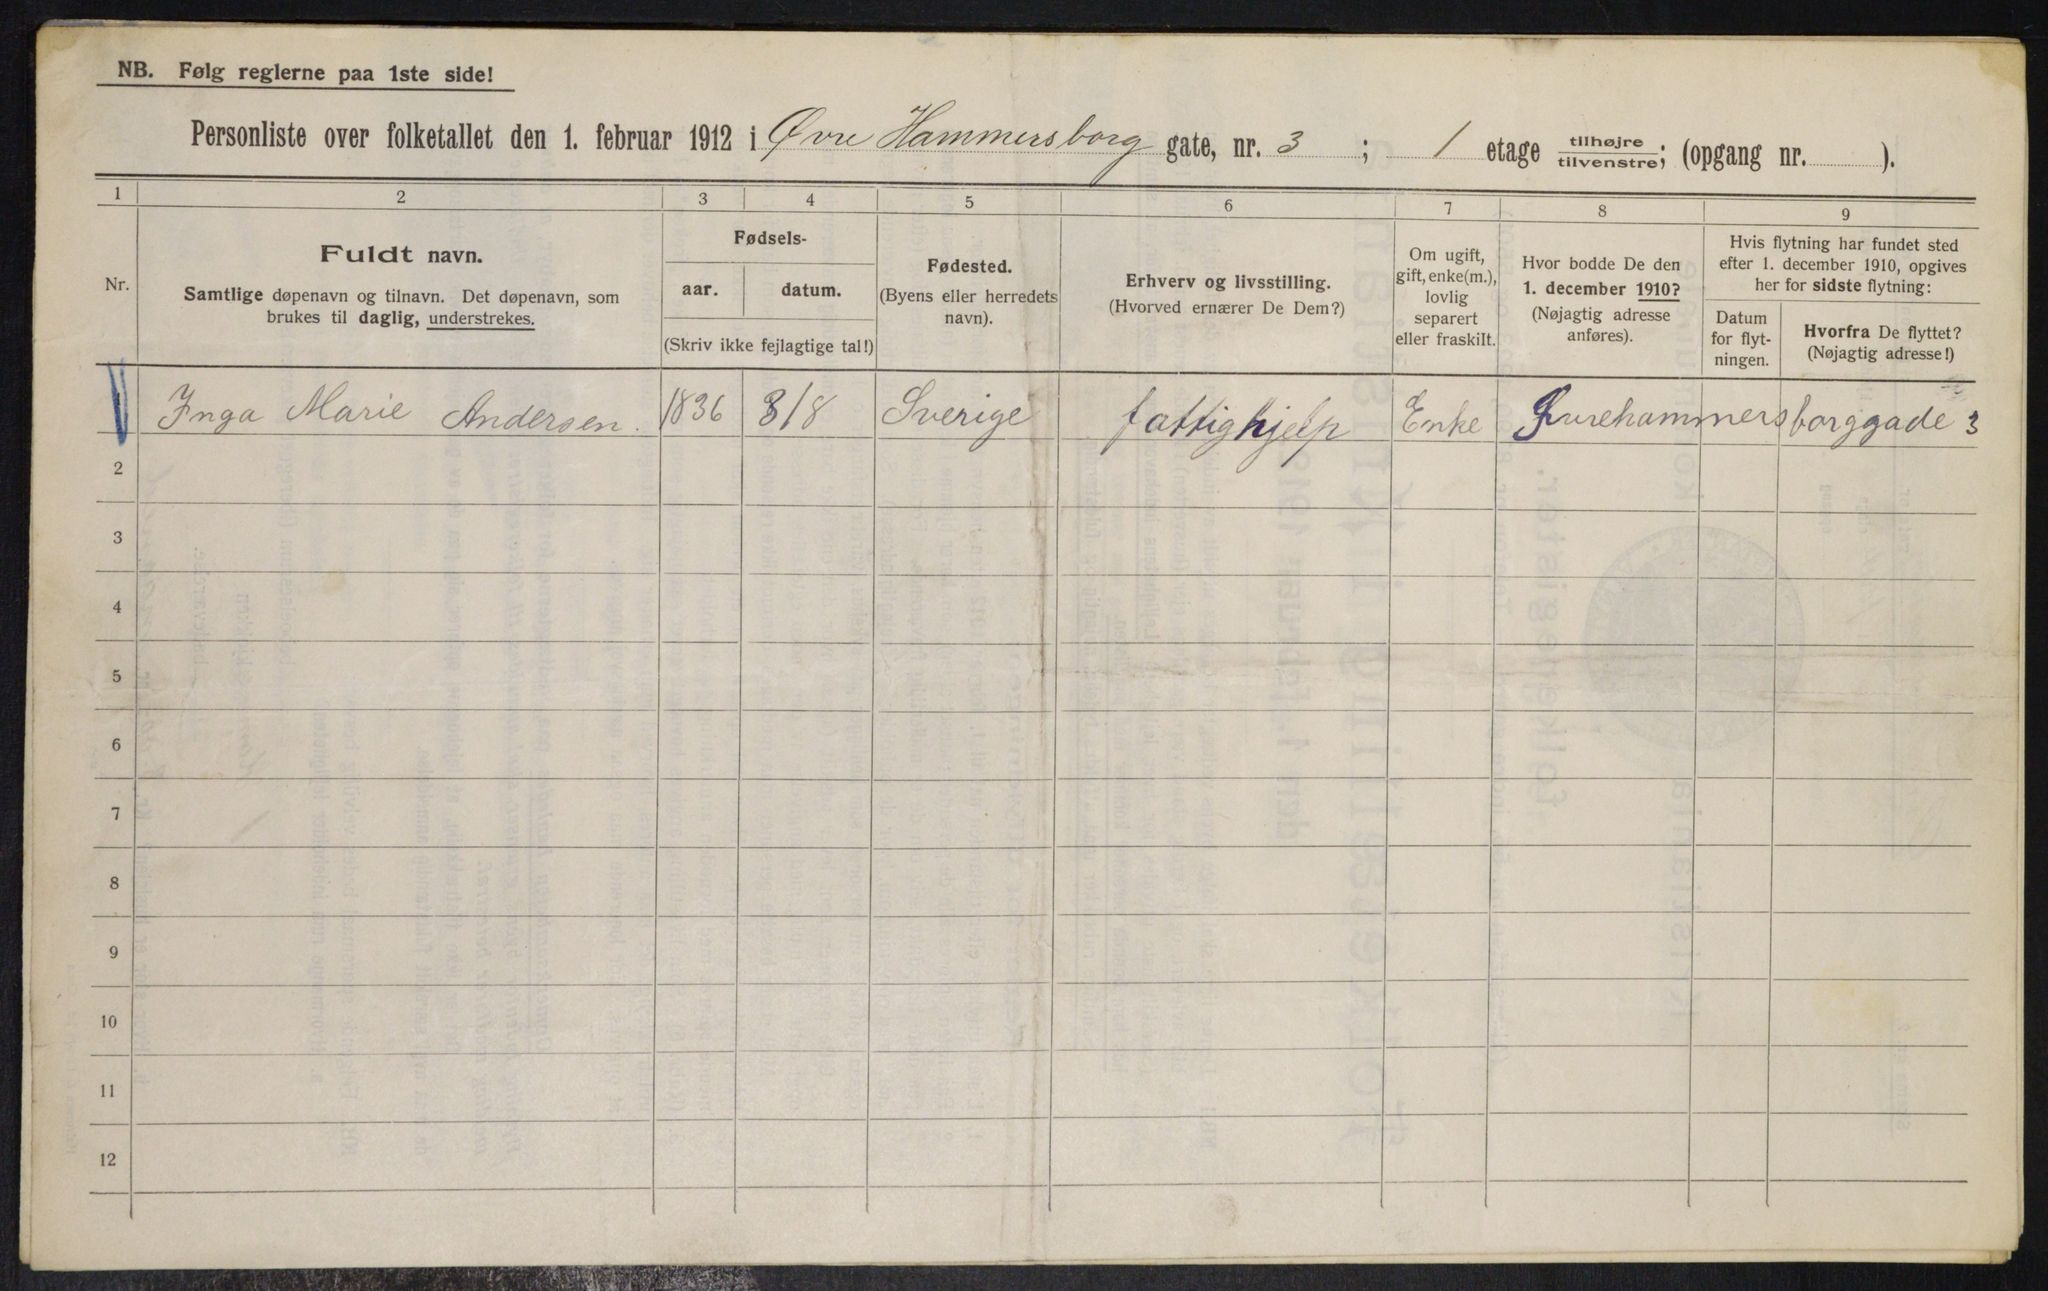 NB. Følg reglerne paa 1ste side!
Personliste over folketallet den 1. februar 1912 i Øvre Hammersborg gate, nr. 3 ; 1 etage tilhøjre/tilvenstre; (opgang nr. ).
1 2 3 4 5 6 7 8 9
Nr.
Fuldt navn.
Samtlige døpenavn og tilnavn. Det døpenavn, som
brukes til daglig, understrekes.
Fødsels-
aar. datum.
(Skriv ikke fejlagtige tal!)
Fødested.
(Byens eller herredets
navn).
Erhverv og livsstilling.
(Hvorved ernærer De Dem?)
Om ugift,
gift, enke(m.),
lovlig
separert
eller fraskilt.
Hvor bodde De den
1. december 1910?
(Nøjagtig adresse
anføres).
Hvis flytning har fundet sted
efter 1. december 1910, opgives
her for sidste flytning:
Datum
for flyt-
ningen.
Hvorfra De flyttet?
(Nøjagtig adresse!)
1 Inga Marie Andersen. 1836 8/8 Sverige fattighjelp Enke Øvrehammersborggade 3
2
3
4
5
6
7
8
9
10
11
12